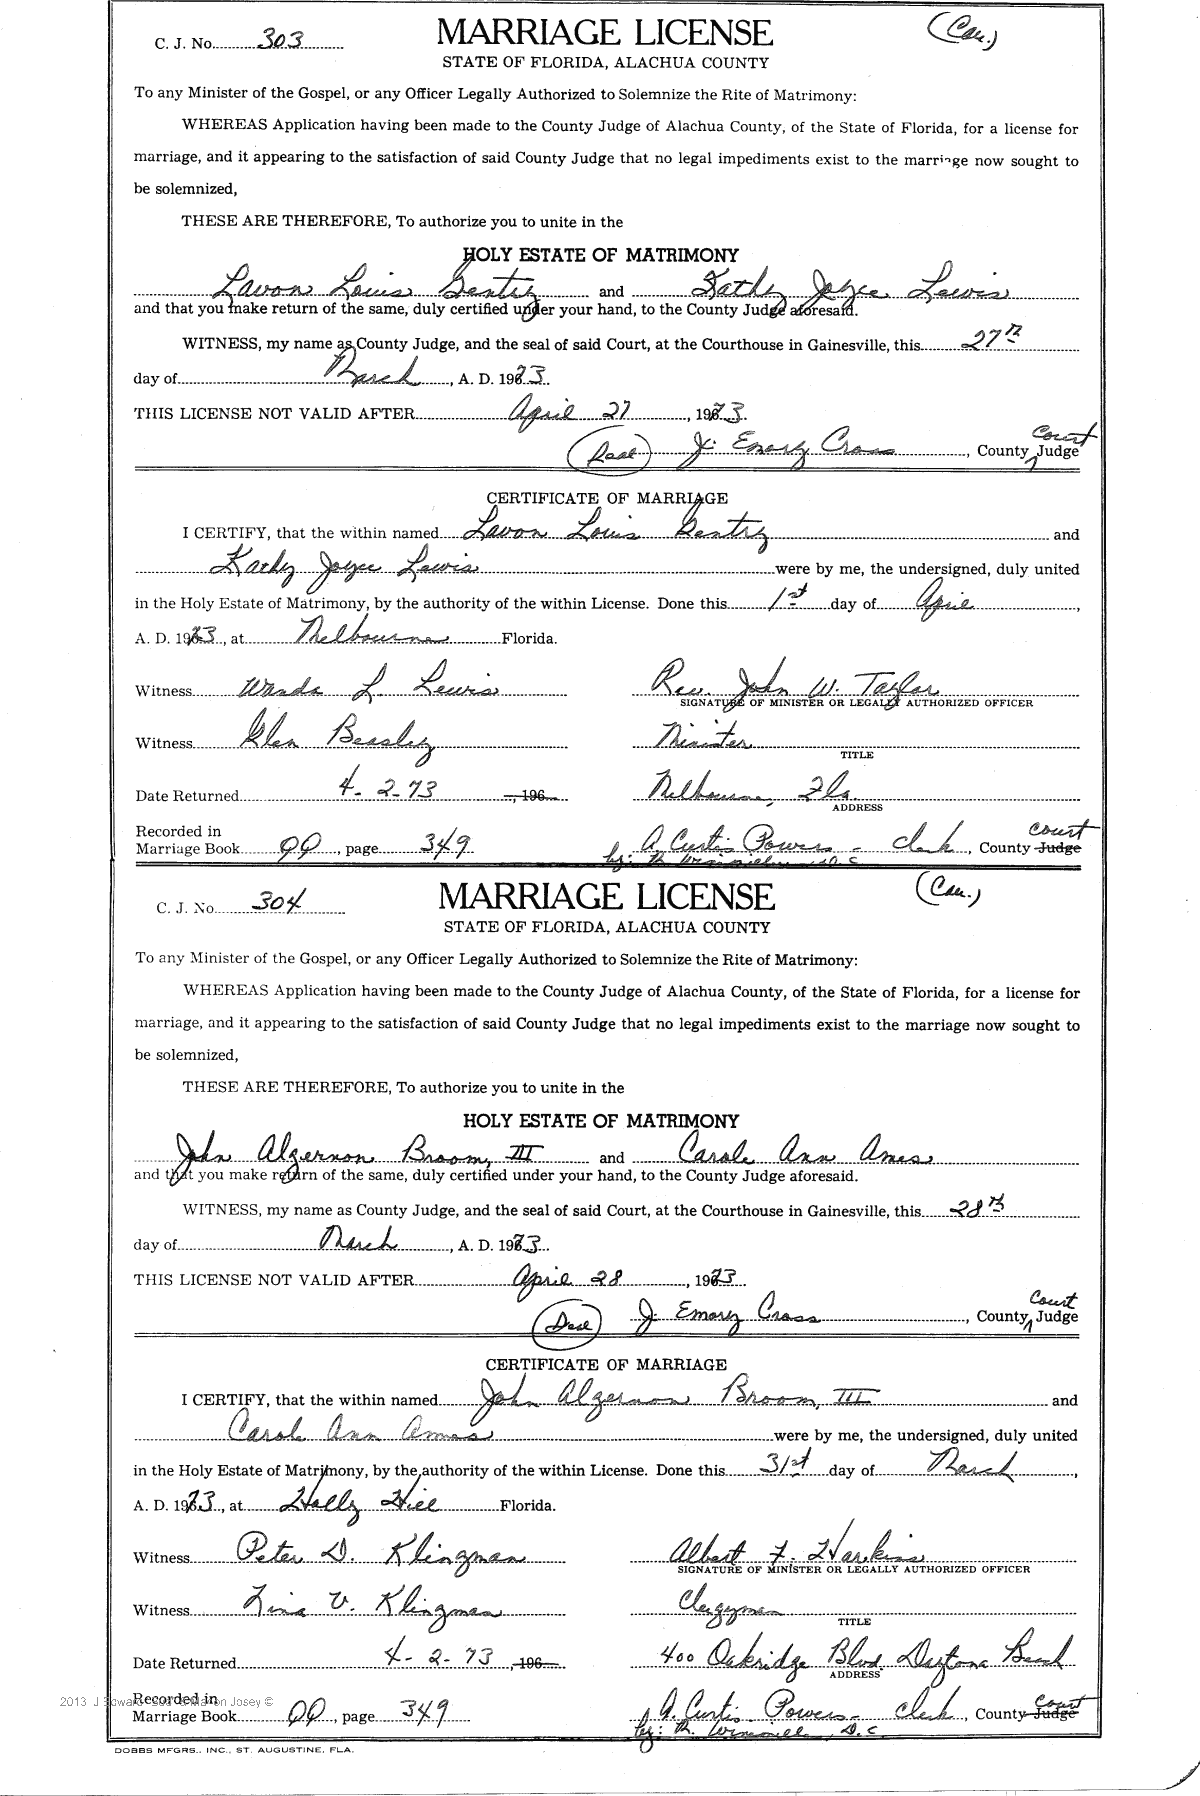 C. J. No. 303 MARRIAGE LICENSE (Cau.)
STATE OF FLORIDA, ALACHUA COUNTY
To any Minister of the Gospel, or any Officer Legally Authorized to Solemnize the Rite of Matrimony:
WHEREAS Application having been made to the County Judge of Alachua County, of the State of Florida, for a license for
marriage, and it appearing to the satisfaction of said County Judge that no legal impediments exist to the marriage now sought to
be solemnized,
THESE ARE THEREFORE, To authorize you to unite in the
HOLY ESTATE OF MATRIMONY
Lavon Louis Gentry and Kathy Joyce Lewis
and that you make return of the same, duly certified under your hand, to the County Judge aforesaid.
WITNESS, my name as County Judge, and the seal of said Court, at the Courthouse in Gainesville, this 27th
day of March, A. D. 1973.
THIS LICENSE NOT VALID AFTER April 27, 1973.
(Seal) J. Emory Cross, County Court Judge
CERTIFICATE OF MARRIAGE
I CERTIFY, that the within named Lavon Louis Gentry and
Kathy Joyce Lewis were by me, the undersigned, duly united
in the Holy Estate of Matrimony, by the authority of the within License. Done this 1st day of April,
A. D. 1973, at Melbourne Florida.
Witness Wanda L. Lewis Rev. John W. Taylor
SIGNATURE OF MINISTER OR LEGALLY AUTHORIZED OFFICER
Witness Glen Beasley Minister
TITLE
Date Returned 4-2-73, 196 Melbourne, Fla.
ADDRESS
Recorded in
Marriage Book QQ, page 349 A. Curtis Powers - Clerk, County Judge Court
by: M. D.C.
C. J. No. 304 MARRIAGE LICENSE (Cau.)
STATE OF FLORIDA, ALACHUA COUNTY
To any Minister of the Gospel, or any Officer Legally Authorized to Solemnize the Rite of Matrimony:
WHEREAS Application having been made to the County Judge of Alachua County, of the State of Florida, for a license for
marriage, and it appearing to the satisfaction of said County Judge that no legal impediments exist to the marriage now sought to
be solemnized,
THESE ARE THEREFORE, To authorize you to unite in the
HOLY ESTATE OF MATRIMONY
John Algernon Broom, III and Carole Ann Ames
and that you make return of the same, duly certified under your hand, to the County Judge aforesaid.
WITNESS, my name as County Judge, and the seal of said Court, at the Courthouse in Gainesville, this 28th
day of March, A. D. 1973.
THIS LICENSE NOT VALID AFTER April 28, 1973
(Seal) J. Emory Cross, County Court Judge
CERTIFICATE OF MARRIAGE
I CERTIFY, that the within named John Algernon Broom, III and
Carole Ann Ames were by me, the undersigned, duly united
in the Holy Estate of Matrimony, by the authority of the within License. Done this 31st day of March,
A. D. 1973, at Holly Hill Florida.
Witness Peter D. Klingman Albert F. Harkins
SIGNATURE OF MINISTER OR LEGALLY AUTHORIZED OFFICER
Witness Lina V. Klingman Clergyman
TITLE
Date Returned 4-2-73, 196 400 Oakridge Blvd. Daytona Beach
ADDRESS
Recorded in
Marriage Book QQ, page 349 A. Curtis Powers - Clerk, County Judge Court
by: M. D.C.
DOBBS MFGRS., INC., ST. AUGUSTINE, FLA.